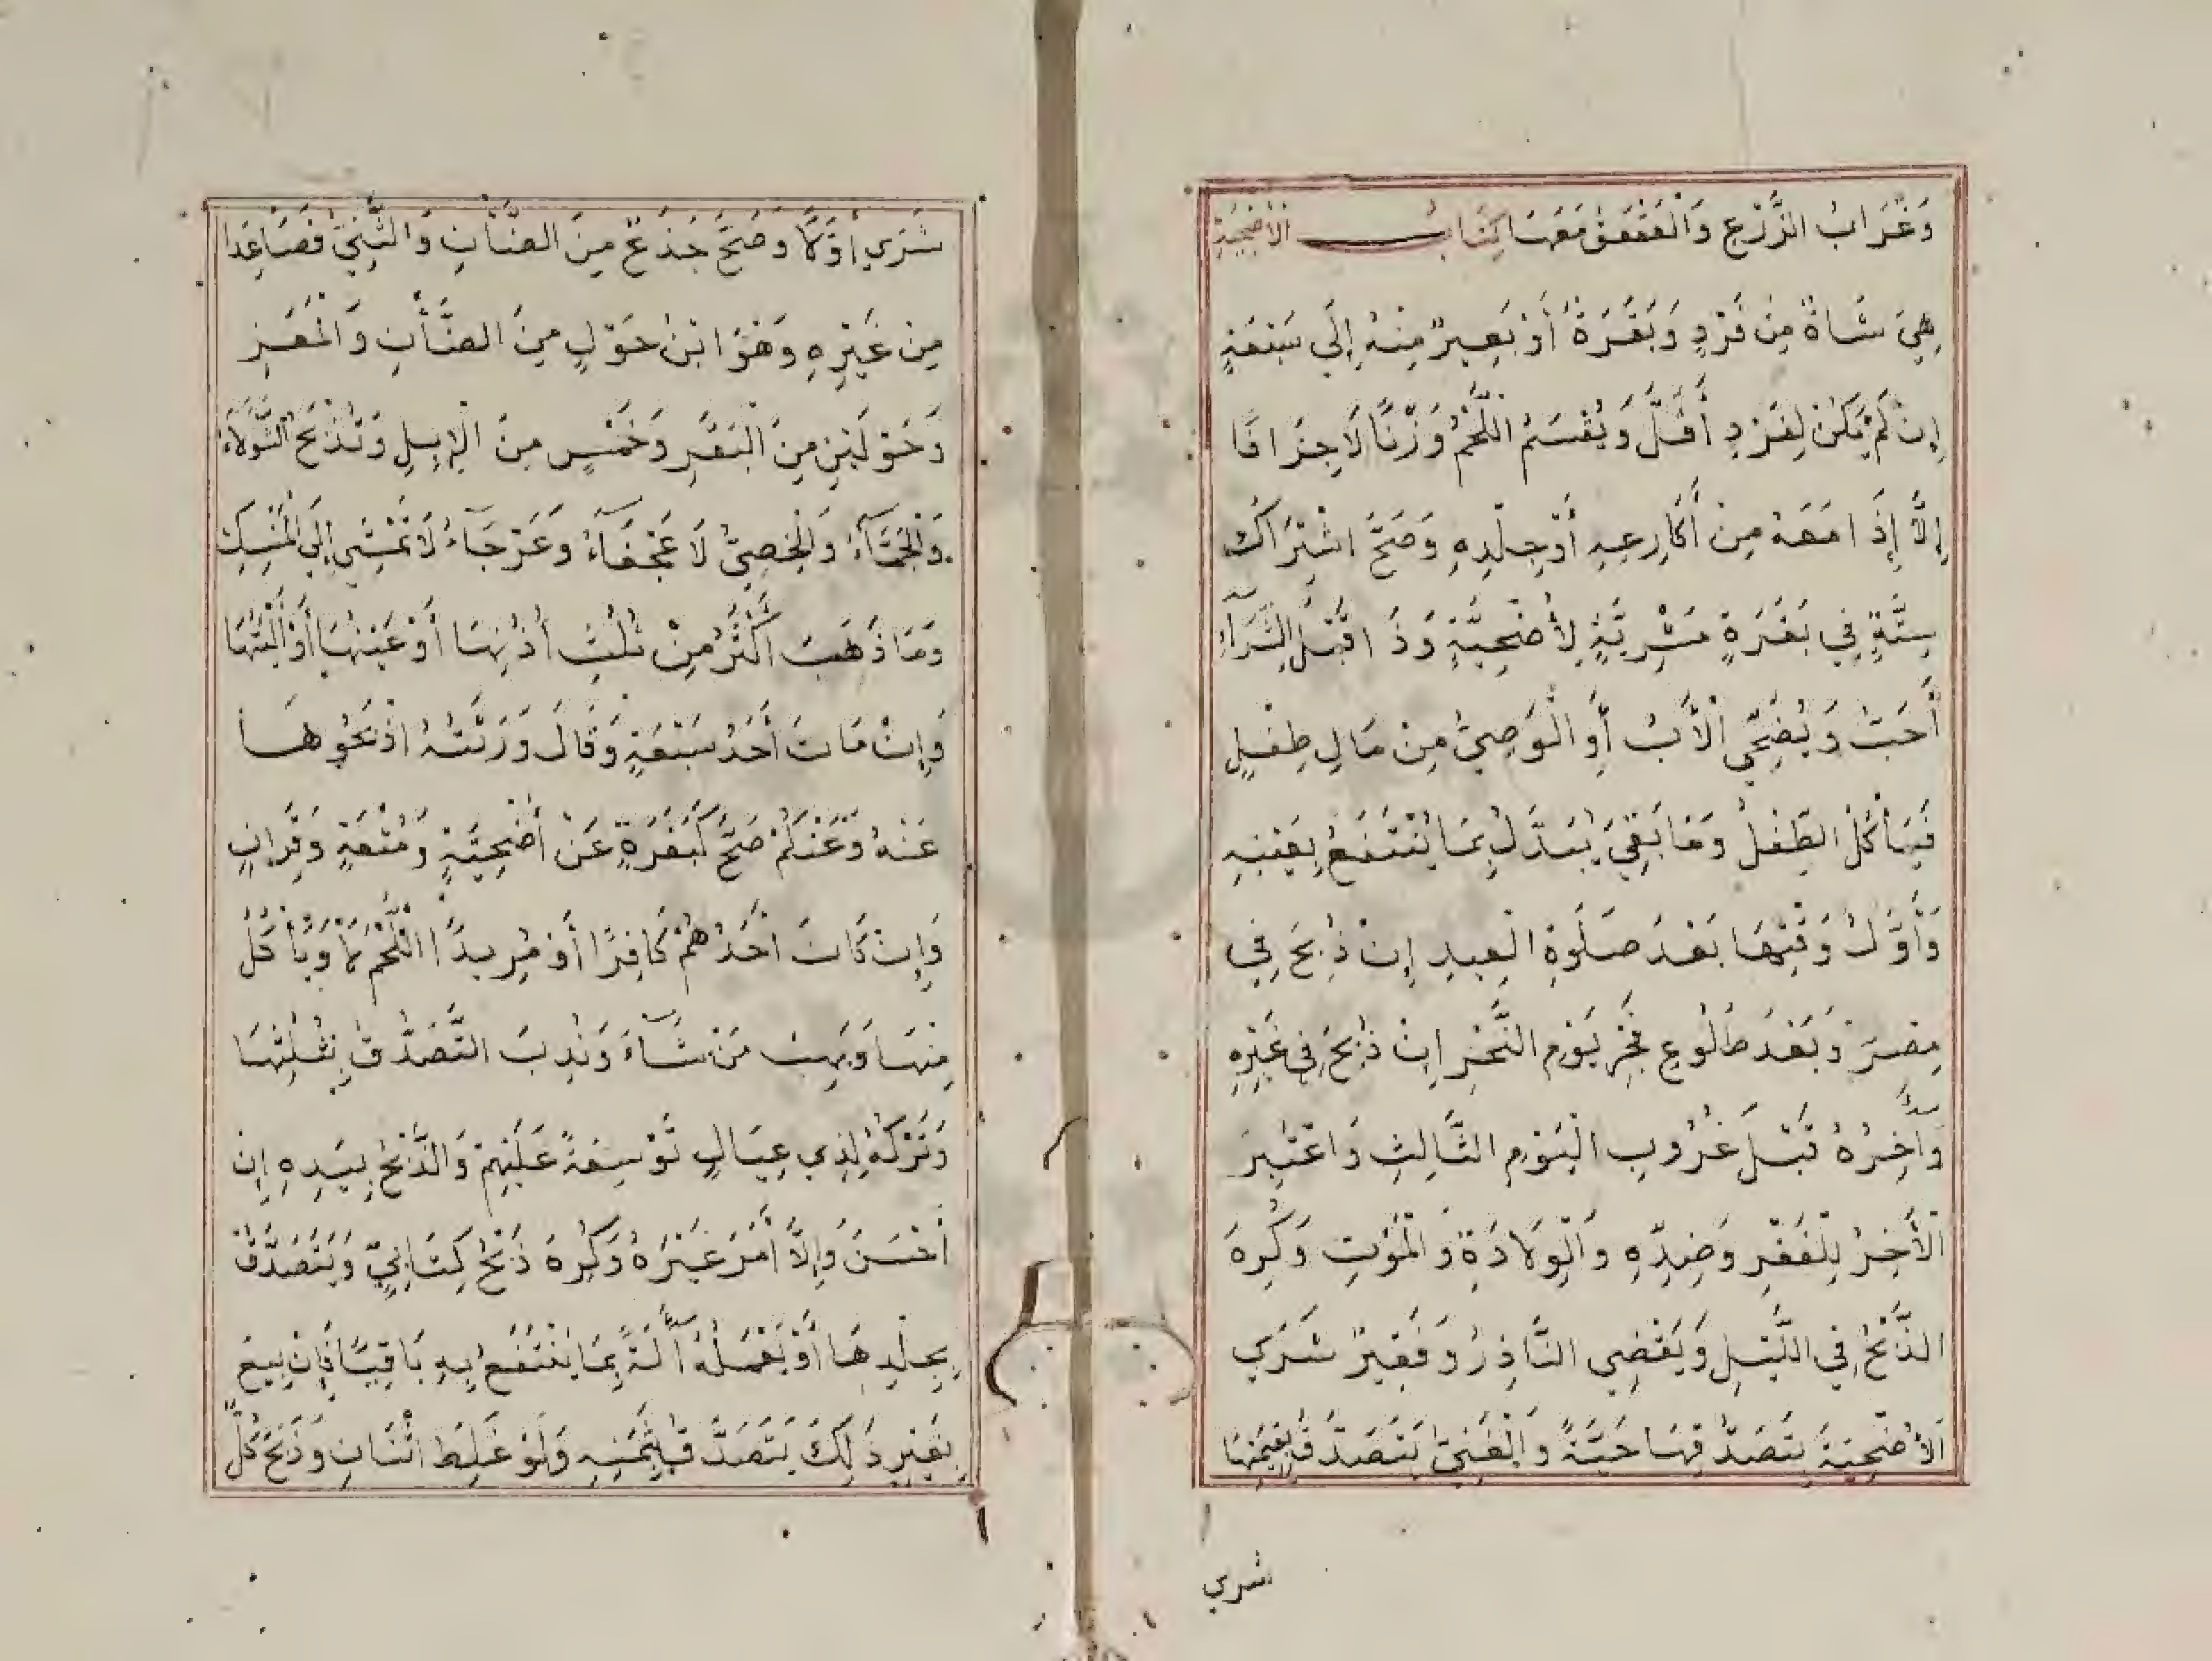 وَغُرَابُ الزَّرْعِ وَالْعَقْعَقُ مَعَهَا كِتَابُ الأُضْحِيَةِ
هِيَ شَاةٌ مِنْ فَرْدٍ وَبَقَرَةٌ أَوْ بَعِيرٌ مِنْهُ إِلَى سَبْعَةٍ
إِنْ لَمْ يَكُنْ لِفَرْدٍ أَقَلَّ وَيُقْسَمُ اللَّحْمُ وَزْنًا لَا جِزَافًا
إِلَّا إِذَا مَعَهُ مِنْ أَكَارِعِهِ أَوْ جِلْدِهِ وَصَحَّ اشْتِرَاكُ
سِتَّةٍ فِي بَقَرَةٍ مَشْرِيَّةٍ لِأُضْحِيَّةٍ وَذَا قَبْلَ الشِّرَآءِ
أَحَبُّ وَيُضَحِّي الْأَبُ أَوِ الْوَصِيُّ مِنْ مَالِ طِفْلٍ
فَيَأْكُلُ الطِّفْلُ وَمَا بَقِيَ يُبَدَّلُ بِمَا يُنْتَفَعُ بِعَيْنِهِ
وَأَوَّلُ وَقْتِهَا بَعْدَ صَلَوةِ الْعِيدِ إِنْ ذُبِحَ فِي
مِصْرَ وَبَعْدَ طُلُوعِ فَجْرِ يَوْمِ النَّحْرِ إِنْ ذُبِحَ فِي غَيْرِهِ
وَآخِرُهُ قَبْلَ غُرُوبِ الْيَوْمِ الثَّالِثِ وَاعْتُبِرَ
الْأَخِرُ لِلْفَقْرِ وَضِدِّهِ وَالْوِلَادَةِ وَالْمَوْتِ وَكُرِهَ
الذَّبْحُ فِي اللَّيْلِ وَيَقْضِي النَّاذِرُ وَفَقِيرٌ شَرَي
الأُضْحِيَةَ بِتَصَدُّقِهَا حَيَّةً وَالْغَنِيُّ يَتَصَدَّقُ بِقِيمَتِهَا
شري
شَرَي أَوَّلًا وَصَحَّ جَذَعٌ مِنَ الضَّأْنِ وَالثَّنِيُّ فَصَاعِدًا
مِنْ غَيْرِهِ وَهُوَ ابْنُ حَوْلٍ مِنَ الضَّأْنِ وَالْمَعْزِ
وَحَوْلَيْنِ مِنَ الْبَقَرِ وَخَمْسٍ مِنَ الْإِبِلِ وَتُذْبَحُ الثَّوْلَاءُ
وَالْجَمَّآءُ وَالْخَصِيُّ لَا عَجْفَآءُ وَعَرْجَآءُ لَا تَمْشِي إِلَى الْمَنْسِكِ
وَمَا ذَهَبَ أَكْثَرُ مِنْ ثُلُثِ أُذُنِهَا أَوْ عَيْنِهَا أَوْ أَلْيَتِهَا
وَإِنْ مَاتَ أَحَدُ سَبْعَةٍ وَقَالَ وَرَثَتُهُ اذْبَحُوهَا
عَنْهُ وَعَنْكُمْ صَحَّ كَبَقَرَةٍ عَنْ أُضْحِيَّةٍ وَمُتْعَةٍ وَقِرَانٍ
وَإِنْ كَانَ أَحَدُهُمْ كَافِرًا أَوْ مُرِيدًا اللَّحْمَ لَا وَيَأْكُلُ
مِنْهَا وَيَهِبُ مَنْ شَآءَ وَنُدِبَ التَّصَدُّقُ بِثُلُثِهَا
وَتَرْكُهُ لِذِي عِيَالٍ تَوْسِعَةً عَلَيْهِمْ وَالذَّبْحُ بِيَدِهِ إِنْ
أَحْسَنَ وَإِلَّا أَمَرَ غَيْرَهُ وَكُرِهَ ذَبْحُ كِتَابِيٍّ وَيَتَصَدَّقُ
بِجِلْدِهَا أَوْ يَعْمَلُهُ آلَةً بِمَا يَنْتَفَعُ بِهِ بَاقِيًا فَإِنْ بِيعَ
بِغَيْرِ ذَلِكَ يَتَصَدَّقُ بِثَمَنِهِ وَلَوْ غَلِطَ اثْنَانِ وَذَبَحَ كُلٌّ